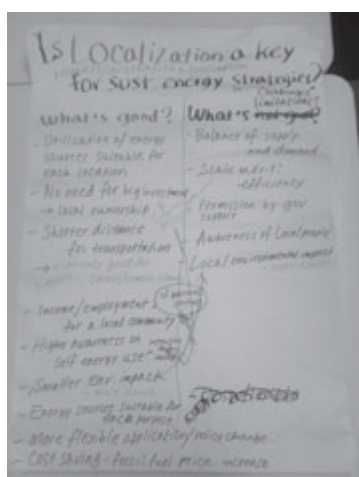 Is Localization a key
for sust. energy strategies?
What's good?
- Utilization of energy
sources suitable for
each location
- No need for big investment
→ local ownership
- Shorter distance
for transportation
- Income/employment
for a local community
- Higher awareness on
self energy use
- Smaller env. impact
- Energy sources suitable for
each purpose
- More flexible application/policy change
- Cost saving - fossil fuel price increase
challenges
limitations?
What's not good?
- Balance of supply
and demand
- Scale merit:
efficiency
- Permission by gov
support
- Awareness of Local people
- Local environmental impact